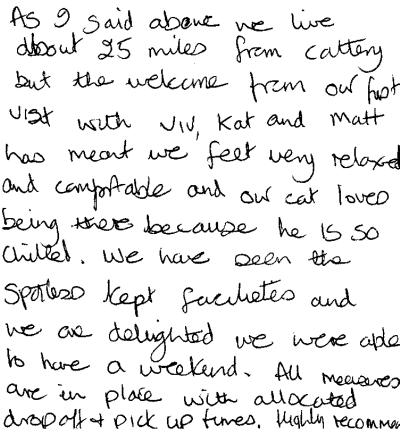 As I said above we live
about 25 miles from cattery
but the welcome from our first
visit with Viv, Kat and Matt
has meant we feel very relaxed
and comfortable and our cat loved
being there because he is so
chilled. We have seen the
spotless kept facilietes and
we are delighted we were able
to have a weekend. All measures
are in place with allocated
drop off + pick up times. Highly recommen